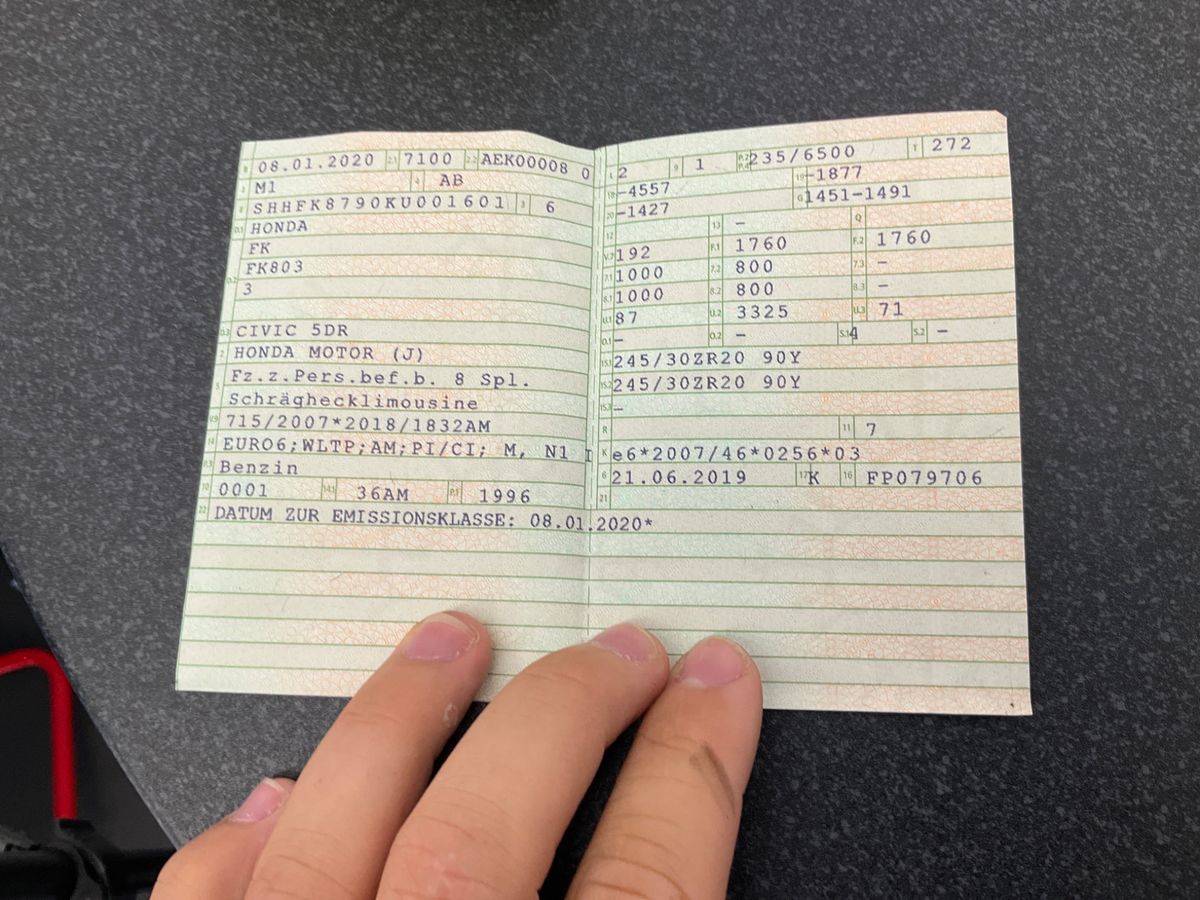 B 08.01.2020 2.1 7100 2.2 AEK00008 0
J M1 4 AB
E SHHFK8790KU001601 3 6
D.1 HONDA
FK
D.2 FK803
3
D.3 CIVIC 5DR
2 HONDA MOTOR (J)
5 Fz.z.Pers.bef.b. 8 Spl.
Schräghecklimousine
V.9 715/2007*2018/1832AM
14 EURO6;WLTP;AM;PI/CI; M, N1 I
P.3 Benzin
10 0001 14.1 36AM P.1 1996
22 DATUM ZUR EMISSIONSKLASSE: 08.01.2020*
L 2 9 1 P.2 P.4 235/6500 T 272
18 -4557 19 -1877
20 -1427 G 1451-1491
12 13 - Q
V.7 192 F.1 1760 F.2 1760
7.1 1000 7.2 800 7.3 -
8.1 1000 8.2 800 8.3 -
U.1 87 U.2 3325 U.3 71
O.1 - O.2 - S.1 4 S.2 -
15.1 245/30ZR20 90Y
15.2 245/30ZR20 90Y
15.3 -
R 11 7
K e6*2007/46*0256*03
6 21.06.2019 17 K 16 FP079706
21